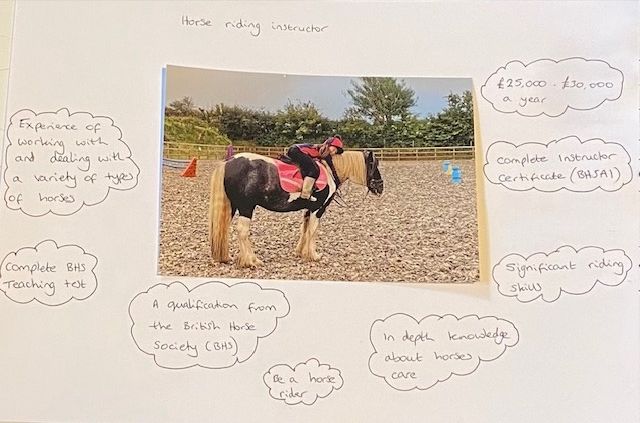 Horse riding instructor
£25,000 - £30,000
a year
Experience of
working with
and dealing with
a variety of types
of horses
complete Instructor
Certificate (BHSAI)
Complete BHS
Teaching test
Significant riding
skills
A qualification from
the British Horse
Society (BHS)
In depth knowledge
about horses
care
Be a horse
rider